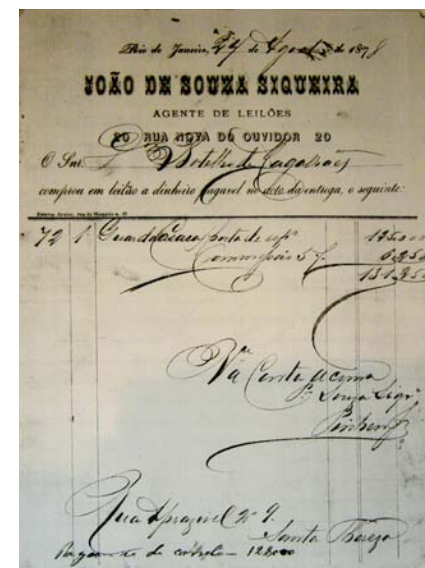 Rio de Janeiro, 27 de Agosto de 1878
JOÃO DE SOUZA SIQUEIRA
AGENTE DE LEILÕES
20 RUA NOVA DO OUVIDOR 20
O Snr. Botelho de Magalhães
comprou em leilão a dinheiro pagavel no acto da entrega, o seguinte:
72 1 Guarda Casaca porta de esp.º 125000
Commissão 5 6250
131250
Conta acima
Souza Siqrª
Rua Aprazivel nº 9.
Santa Thereza
de 128000